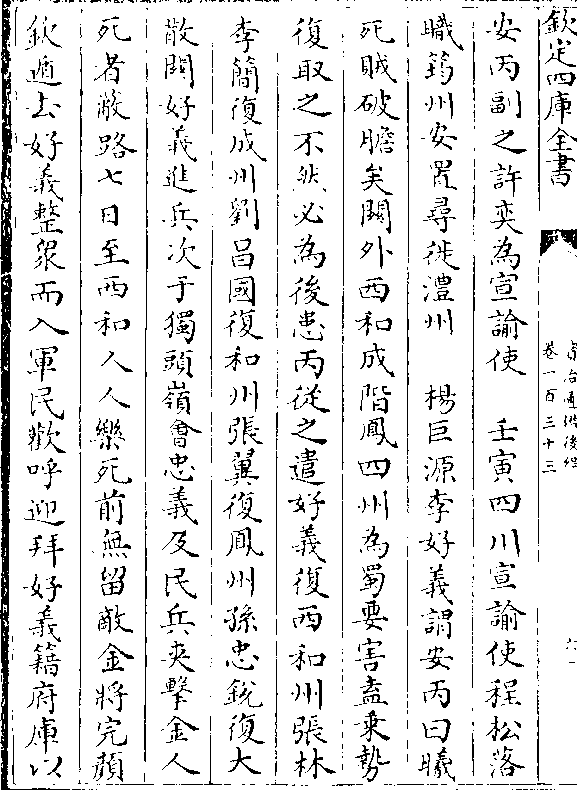 欽定四庫全書
資治通鑑後編
卷一百三十三
安丙副之許奕為宣諭使　壬寅四川宣諭使程松落
職筠州安置尋徙澧州　楊巨源李好義謂安丙曰曦
死賊破膽矣關外西和成階鳳四州為蜀要害盍乘勢
復取之不然必為後患丙從之遣好義復西和州張林
李簡復成州劉昌國復和州張翼復鳳州孫忠銳復大
散關好義進兵次于獨頭嶺會忠義及民兵夾擊金人
死者蔽路七日至西和人人樂死前無留敵金將完顏
欽遁去好義整衆而入軍民歡呼迎拜好義籍府庫以